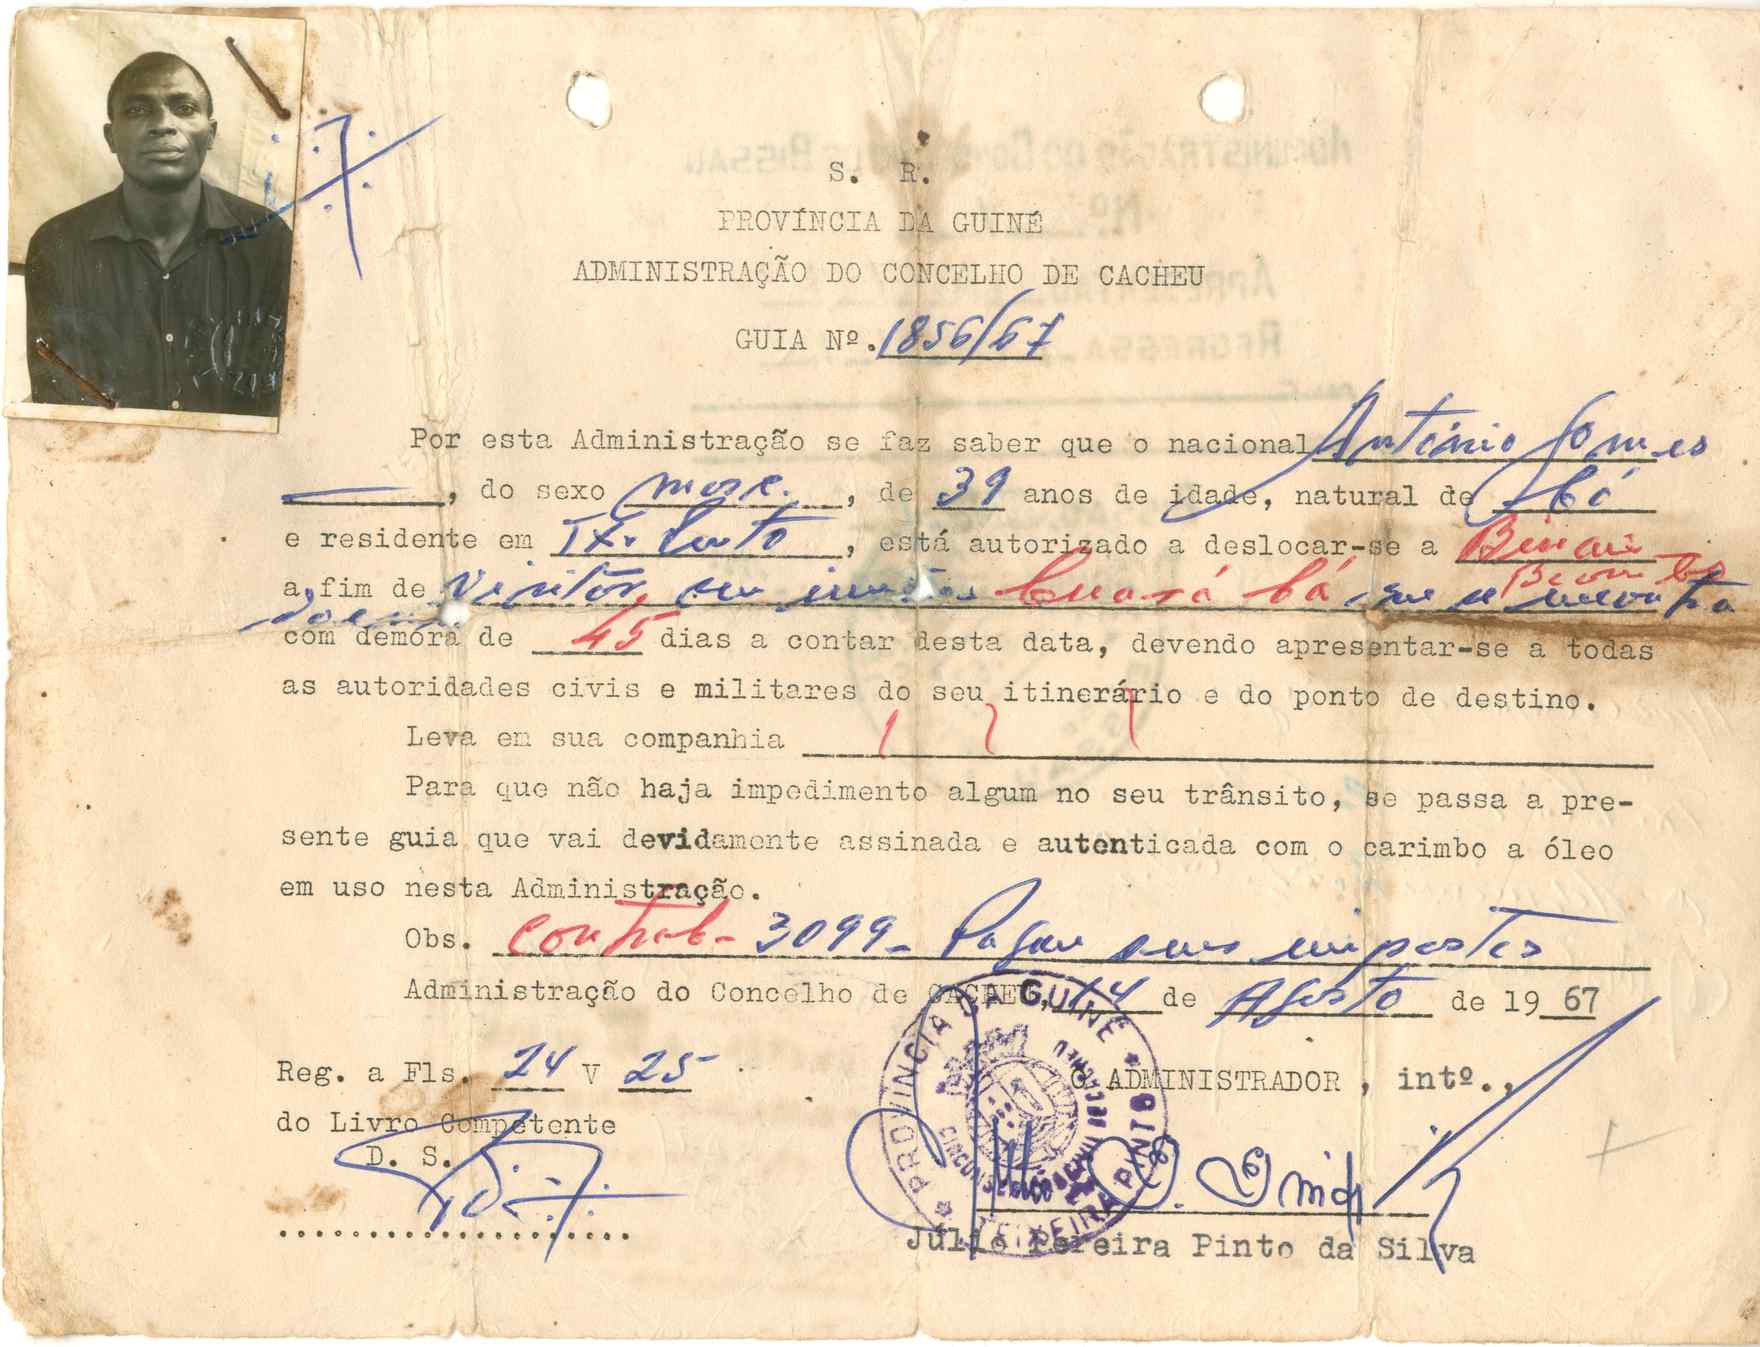 S. R.
PROVÍNCIA DA GUINÉ
ADMINISTRAÇÃO DO CONCELHO DE CACHEU
GUIA Nº. 1856/67
Por esta Administração se faz saber que o nacional António Gomes
, do sexo masc. , de 39 anos de idade, natural de Có
e residente em , está autorizado a deslocar-se a
a fim de visitar, seu irmão Cá, que se encontra
doente
com demora de 45 dias a contar desta data, devendo apresentar-se a todas
as autoridades civis e militares do seu itinerário e do ponto de destino.
Leva em sua companhia
Para que não haja impedimento algum no seu trânsito, se passa a pre-
sente guia que vai devidamente assinada e autenticada com o carimbo a óleo
em uso nesta Administração.
Obs. Contrib- 3099- Pagou seus impostos
Administração do Concelho de CACHEU, 14 de Agosto de 19 67
Reg. a Fls. 24 V 25
O ADMINISTRADOR, intº.,
do Livro Competente
D. S.
PROVÍNCIA DA GUINÉ
TEIXEIRA PINTO
Júlio Pereira Pinto da Silva